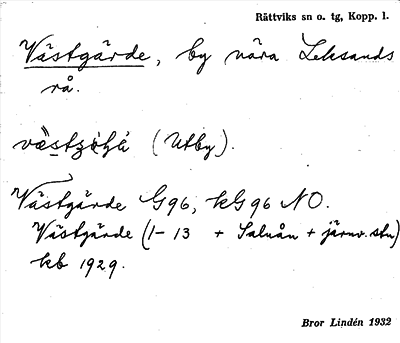 Rättviks sn o. tg, Kopp. l.
Västgärde, by nära Leksands
rå.
(Utby).
Västgärde G96, kG96 NO.
Västgärde (1-13 + Saluån + järnv. stn)
kb 1929.
Bror Lindén 1932